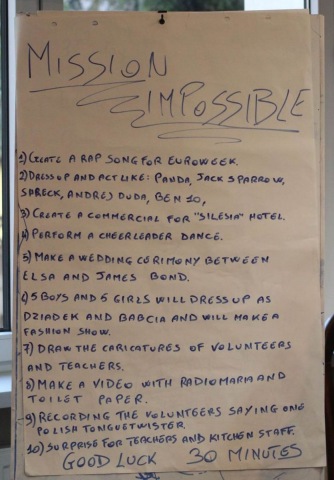 MISSION
IMPOSSIBLE
1) CREATE A RAP SONG FOR EUROWEEK.
2) DRESS UP AND ACT LIKE: PANDA, JACK SPARROW,
SHRECK, ANDREJ DUDA, BEN 10,
3) CREATE A COMMERCIAL FOR "SILESIA" HOTEL.
4) PERFORM A CHEERLEADER DANCE.
5) MAKE A WEDDING CERIMONY BETWEEN
ELSA AND JAMES BOND.
6) 5 BOYS AND 5 GIRLS WILL DRESS UP AS
DZIADEK AND BABCIA AND WILL MAKE A
FASHION SHOW.
7) DRAW THE CARICATURES OF VOLUNTEERS
AND TEACHERS.
8) MAKE A VIDEO WITH RADIOMARIA AND
TOILET PAPER.
9) RECORDING THE VOLUNTEERS SAYING ONE
POLISH TONGUETWISTER.
10) SURPRISE FOR TEACHERS AND KITCHEN STAFF.
GOOD LUCK 30 MINUTES